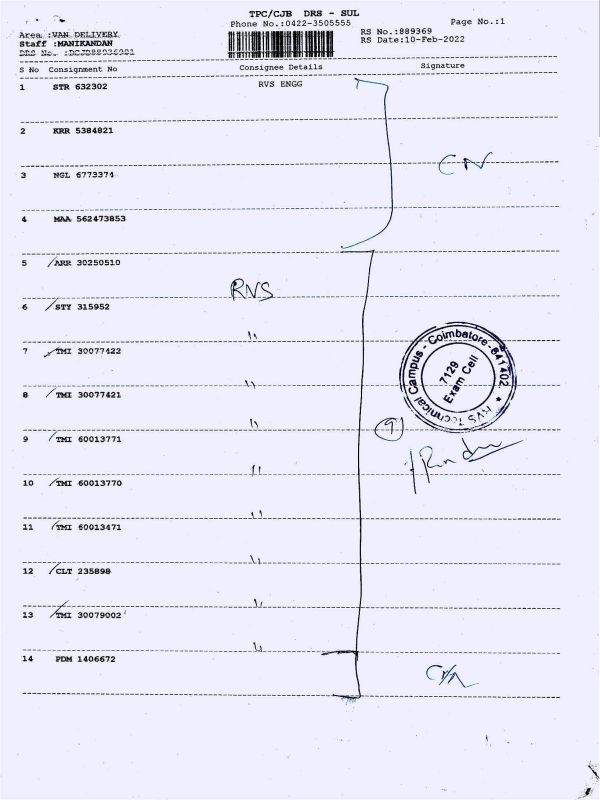 TPC/CJB DRS - SUL
Phone No.:0422-3505555
Page No.:1
Area :VAN DELIVERY
RS No.:889369
Staff :MANIKANDAN
RS Date:10-Feb-2022
DRS No.
S No Consignment No Consignee Details Signature
1 STR 632302 RVS ENGG
2 KRR 5384821
CN
3 NGL 6773374
4 MAA 562473853
5 ARR 30250510
RVS
6 STY 315952
"
7 TMI 30077422
"
8 TMI 30077421
"
9 TMI 60013771
"
10 TMI 60013770
"
11 TMI 60013471
"
12 CLT 235898
"
13 TMI 30079002
"
14 PDM 1406672
9
RVS Technical Campus - Coimbatore - 641402 *
7129
Exam Cell